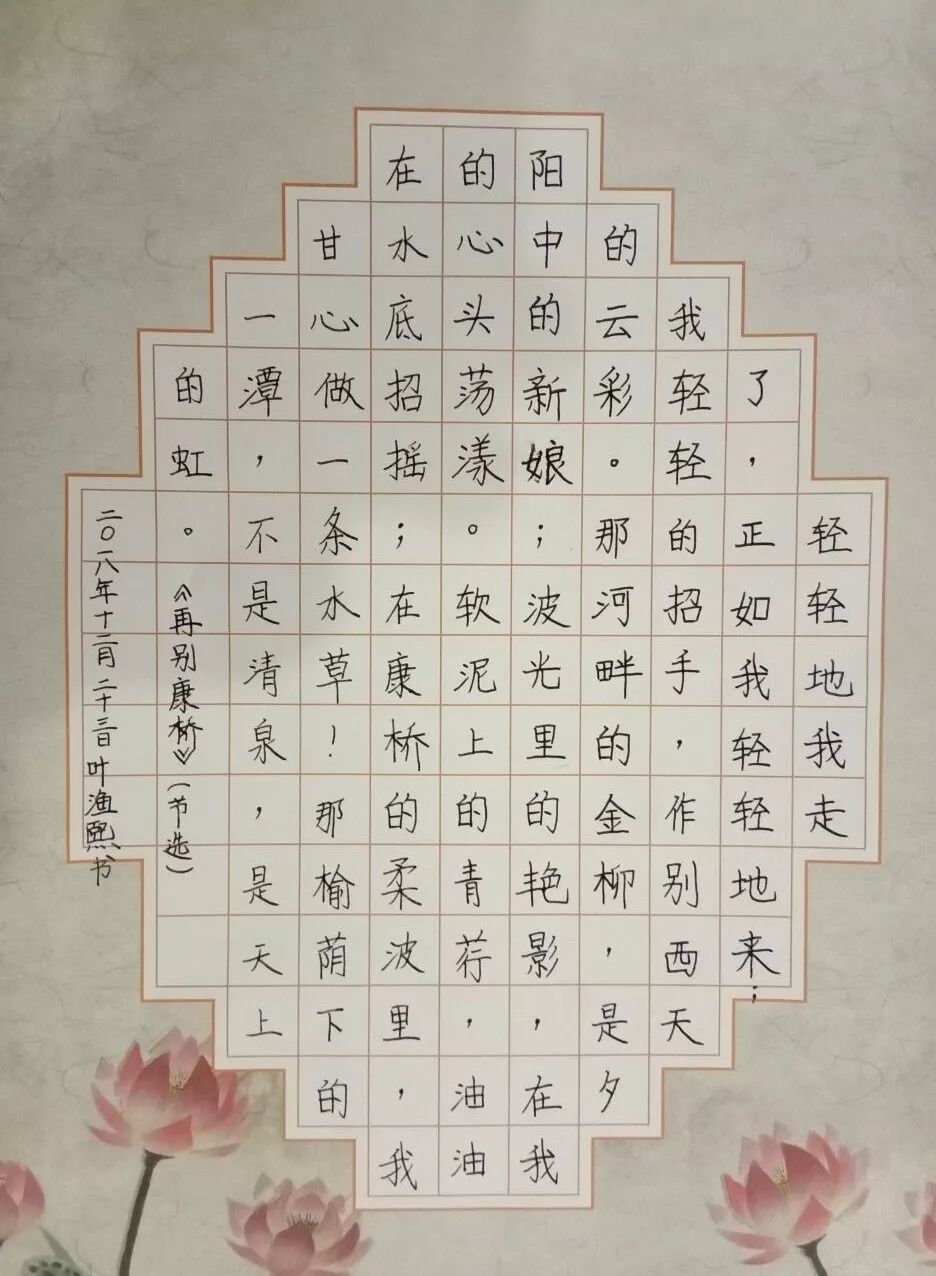 轻轻地我走
了，正如我轻轻地来；
我轻轻的招手，作别西天
的云彩。那河畔的金柳，是夕
阳中的新娘；波光里的艳影，在我
的心头荡漾。软泥上的青荇，油油
在水底招摇；在康桥的柔波里，我
甘心做一条水草！那榆荫下的
一潭，不是清泉，是天上
的虹。《再别康桥》(节选)
二〇一八年十二月二十三日叶渔熙书